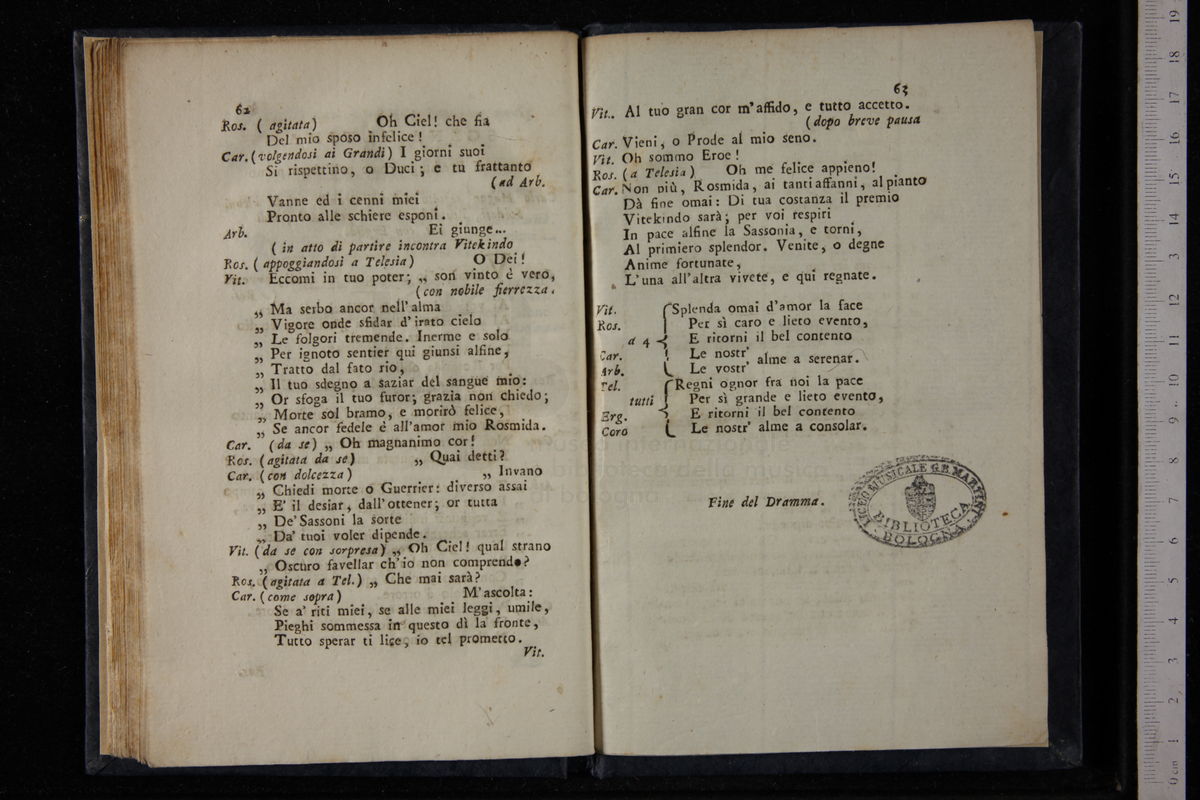 62
Ros. ( agitata) Oh Ciel! che fia
Del mio sposo infelice!
Car. (volgendosi ai Grandi) I giorni suoi
Si rispettino, o Duci; e tu frattanto
(ad Arb.
Vanne ed i cenni miei
Pronto alle schiere esponi.
Arb. Ei giunge...
( in atto di partire incontra Vitekindo
Ros. ( appoggiandosi a Telesia) O Dei!
Vit. Eccomi in tuo poter; „ son vinto è vero,
(con nobile fierrezza.
„ Ma serbo ancor nell'alma
„ Vigore onde sfidar d'irato cielo
„ Le folgori tremende. Inerme e solo
„ Per ignoto sentier qui giunsi alfine,
„ Tratto dal fato rio,
„ Il tuo sdegno a saziar del sangue mio:
„ Or sfoga il tuo furor; grazia non chiedo;
„ Morte sol bramo, e morirò felice,
„ Se ancor fedele è all'amor mio Rosmida.
Car. (da se) „ Oh magnanimo cor!
Ros. (agitata da se) „ Quai detti?
Car. (con dolcezza) „ Invano
„ Chiedi morte o Guerrier: diverso assai
„ E' il desiar, dall'ottener; or tutta
„ De' Sassoni la sorte
„ Da' tuoi voler dipende.
Vit. (da se con sorpresa) „ Oh Ciel! qual strano
„ Oscuro favellar ch'io non comprendo?
Ros. (agitata a Tel.) „ Che mai sarà?
Car. (come sopra) M'ascolta:
Se a' riti miei, se alle miei leggi, umile,
Pieghi sommessa in questo dì la fronte,
Tutto sperar ti lice, io tel prometto.
Vit.
63
Vit. Al tuo gran cor m'affido, e tutto accetto.
(dopo breve pausa
Car. Vieni, o Prode al mio seno.
Vit. Oh sommo Eroe!
Ros. (a Telesia) Oh me felice appieno!
Car. Non più, Rosmida, ai tanti affanni, al pianto
Dà fine omai: Di tua costanza il premio
Vitekindo sarà; per voi respiri
In pace alfine la Sassonia, e torni,
Al primiero splendor. Venite, o degne
Anime fortunate,
L'una all'altra vivete, e qui regnate.
Vit. Splenda omai d'amor la face
Ros. Per sì caro e lieto evento,
a 4 E ritorni il bel contento
Car. Le nostr' alme a serenar.
Arb. Le vostr'
Tel. Regni ognor fra noi la pace
tutti Per sì grande e lieto evento,
Erg. E ritorni il bel contento
Coro Le nostr' alme a consolar.
Fine del Dramma.
LICEO MUSICALE G.B. MARTINI
BIBLIOTECA
BOLOGNA
museo internazionale
e biblioteca della musica
di bologna
0 cm 1 2 3 4 5 6 7 8 9 10 11 12 13 14 15 16 17 18 19